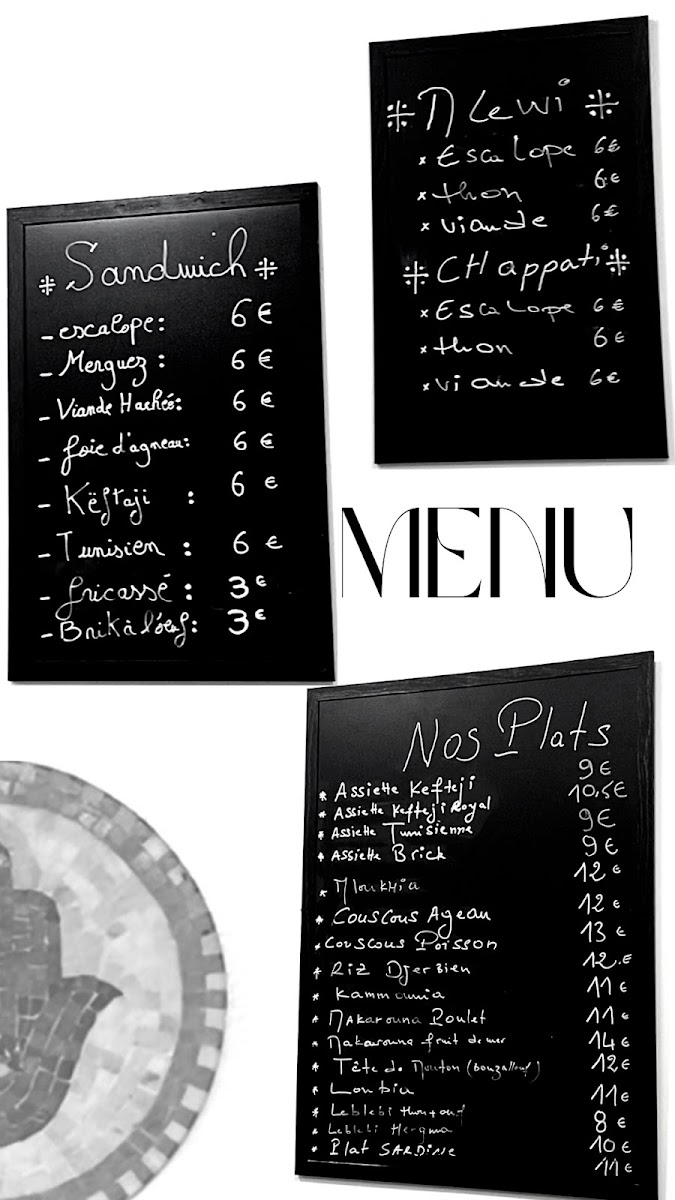 Mlewi
× Escalope 6€
× thon 6€
× viande 6€
CHappati
× Escalope 6€
× thon 6€
× viande 6€
Sandwich
- escalope: 6€
- Merguez : 6€
- Viande Hachés: 6€
- foie d'agneau: 6€
- Këftaji : 6€
- Tunisien : 6€
- fricassé : 3€
- Brik à l'œuf: 3€
MENU
Nos Plats
* Assiette Kefteji 9€
* Assiette Kefteji Royal 10,5€
* Assiette Tunisienne 9€
* Assiette Brick 9€
* Mloukhia 12€
* Couscous Ageau 12€
* Couscous Poisson 13€
* Riz Djerbien 12.€
* Kammounia 11€
* Makarouna Poulet 11€
* Makarouna fruit de mer 14€
* Tête de Mouton (bouzallouf) 12€
* Loubia 11€
* Leblebi thon+oeuf 8€
* Leblebi Hergma 10€
* Plat SARDine 11€